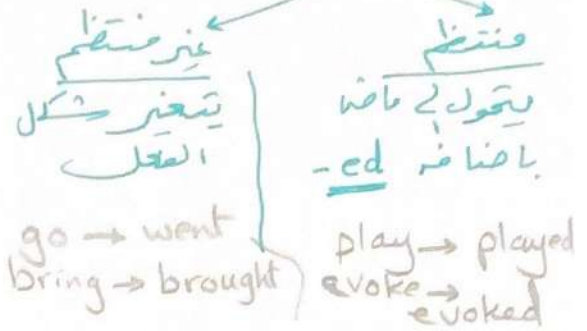 منتظم
يتحول لـ ماضي
باضافة ed-
play → played
evoke →
evoked
غير منتظم
يتغير شكل
الفعل
go → went
bring → brought